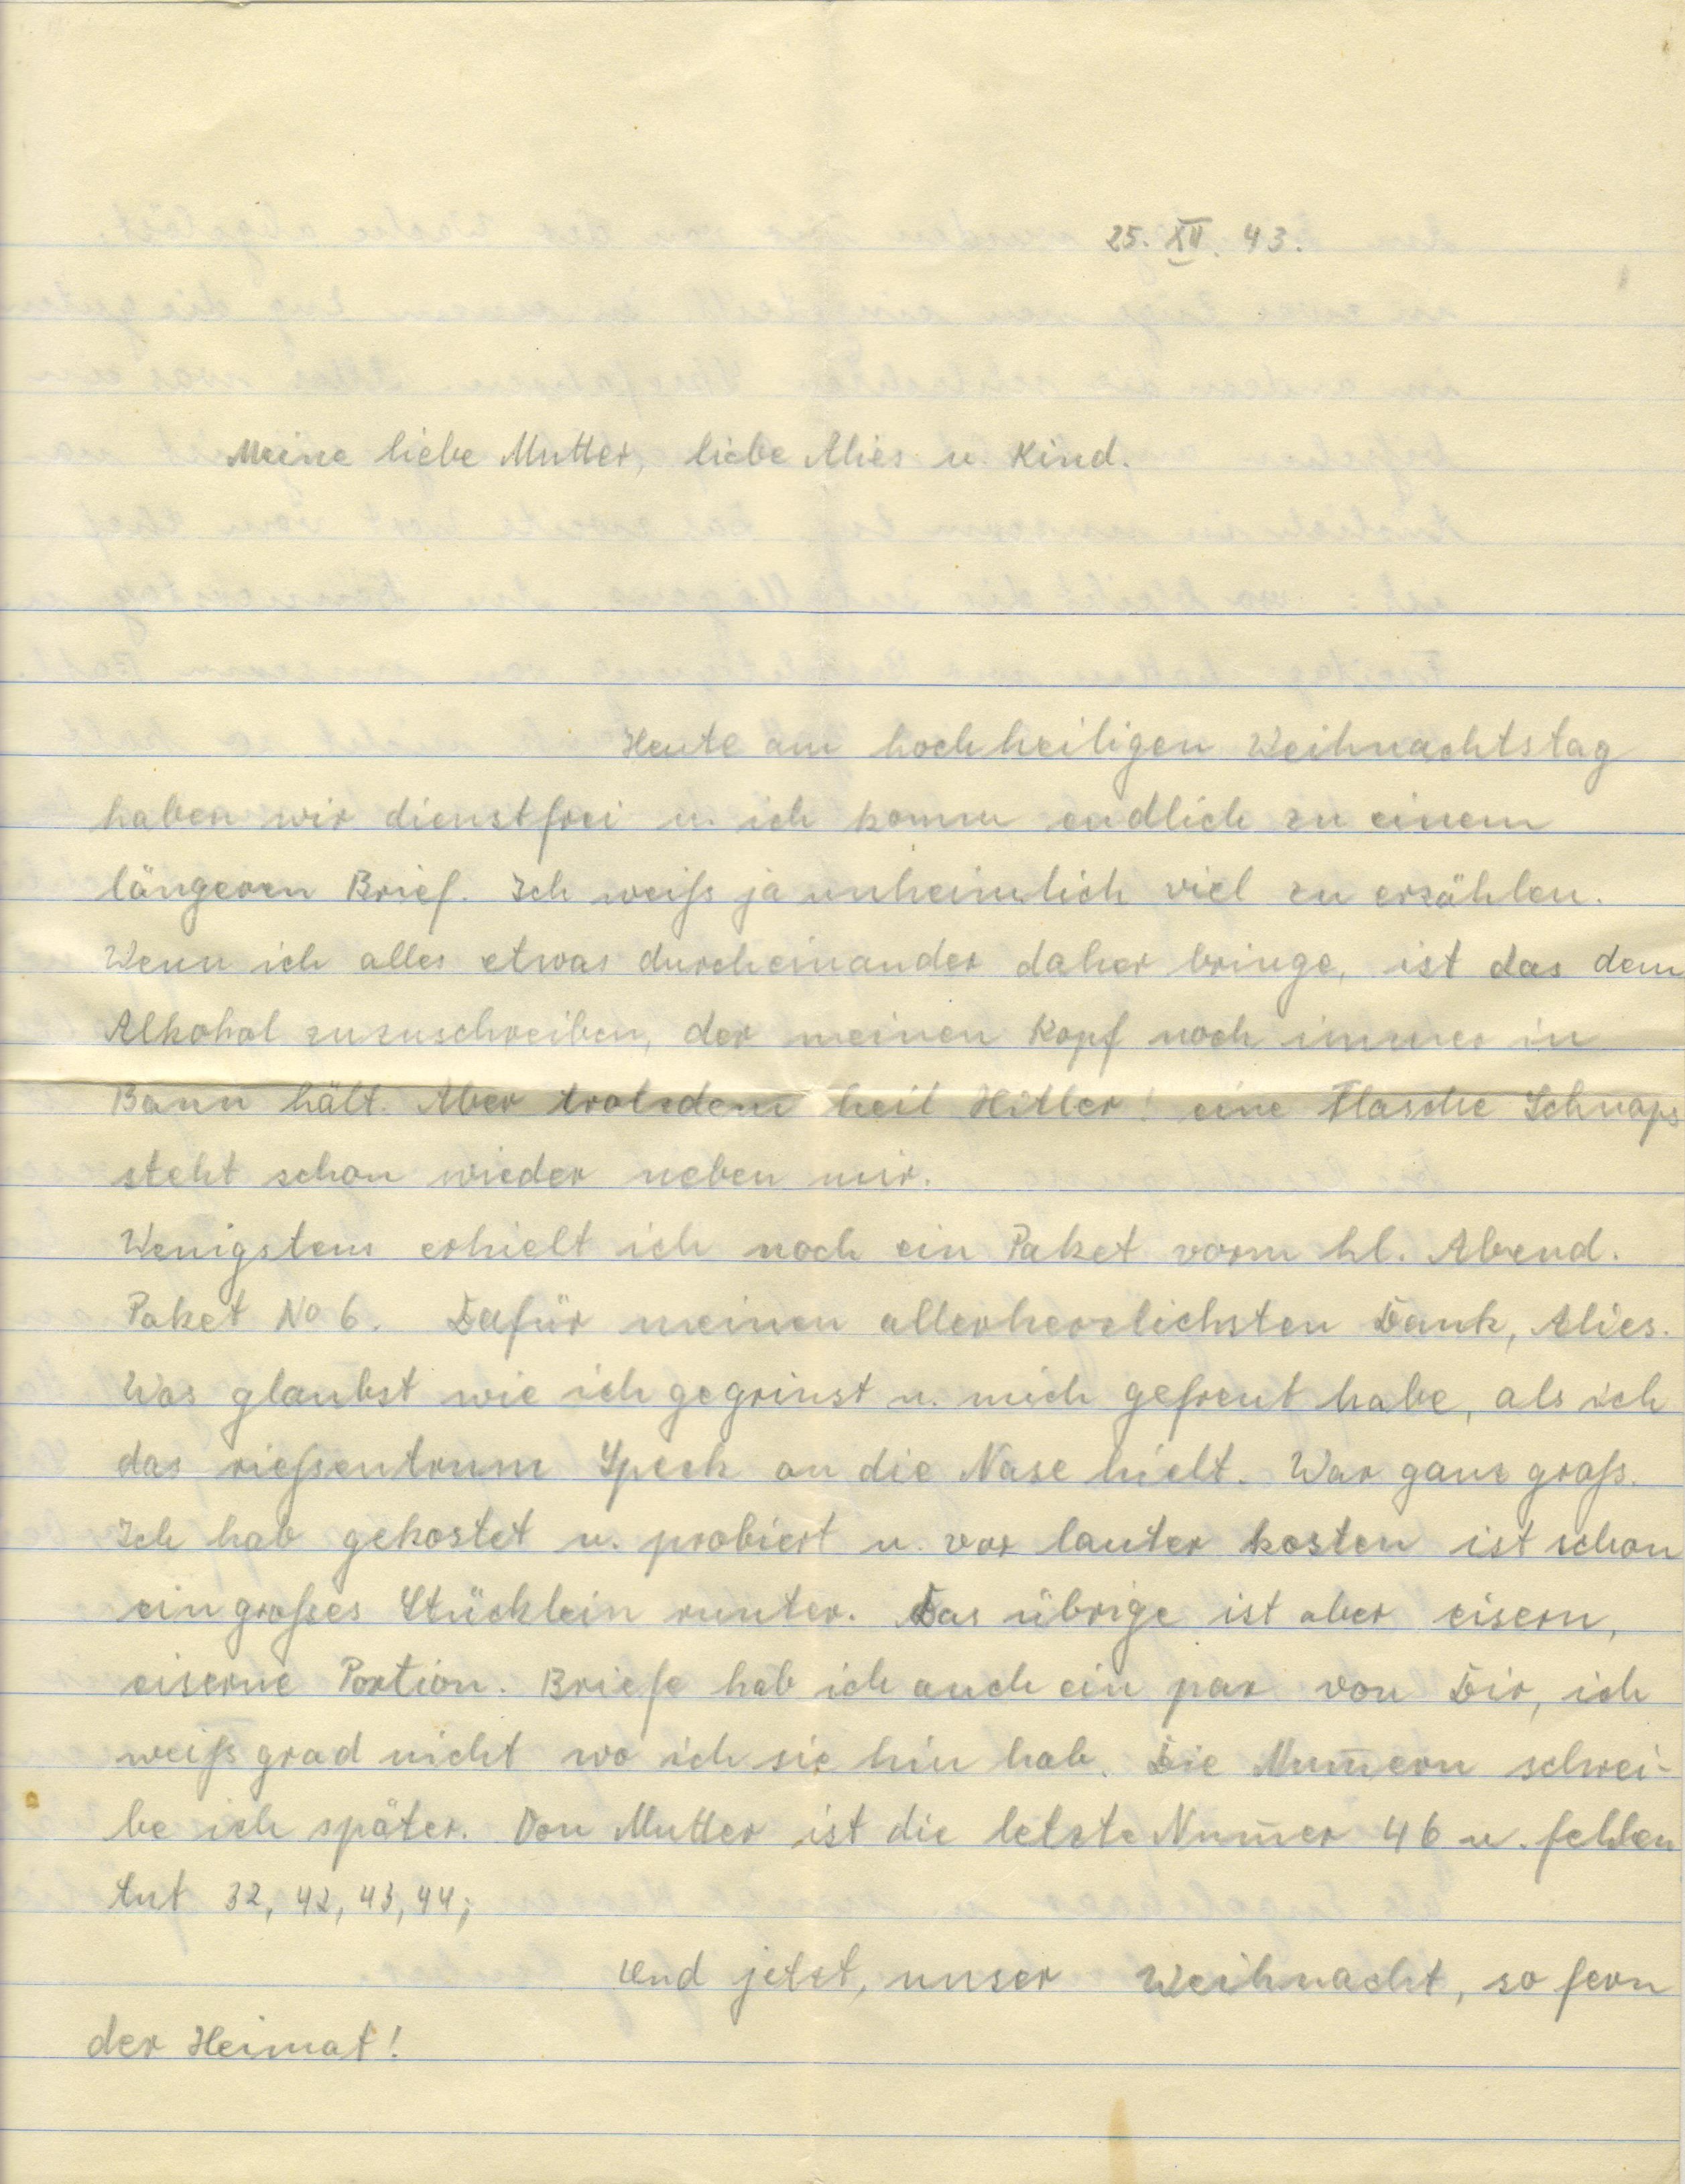 25. XII. 43.
Meine liebe Mutter, liebe Alies u. Kind.
Heute am hochheiligen Weihnachtstag
haben wir dienstfrei u. ich komm endlich zu einem
längeren Brief. Ich weiß ja unheimlich viel zu erzählen.
Wenn ich alles etwas durcheinander daher bringe, ist das dem
Alkohol zuzuschreiben, der meinen Kopf noch immer in
Bann hält. Aber trotzdem heil Hitler! eine Flasche Schnaps
steht schon wieder neben mir.
Wenigstens erhielt ich noch ein Paket vorm hl. Abend.
Paket No 6. Dafür meinen allerherzlichsten Dank, Alies.
Was glaubst wie ich gegrinst u. mich gefreut habe, als ich
das rießentrum Speck an die Nase hielt. War ganz groß.
Ich hab gekostet u. probiert u. vor lauter kosten ist schon
ein großes Stücklein runter. Das übrige ist aber eisern,
eiserne Portion. Briefe hab ich auch ein par von Dir, ich
weiß grad nicht wo ich sie hin hab. Die Num̄ern schrei-
be ich später. Von Mutter ist die letzte Num̄er 46 u. fehlen
tut 32, 42, 43, 44;
Und jetzt, unser Weihnacht, so fern
der Heimat!